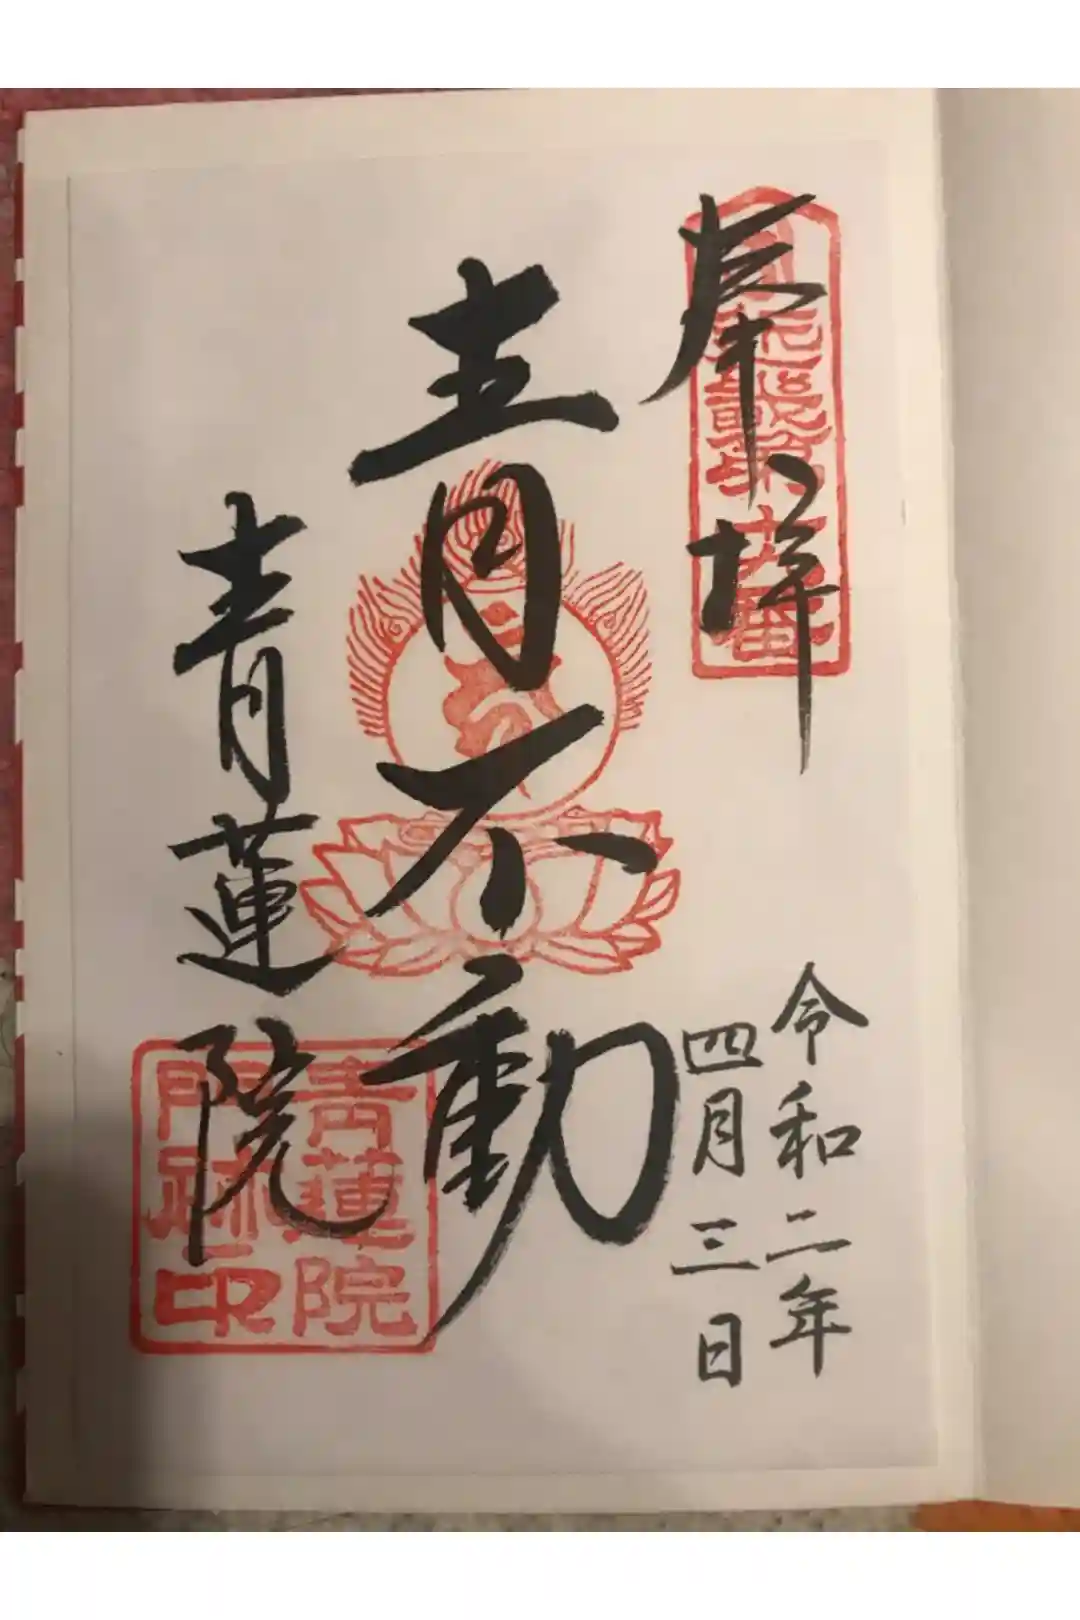 奉拝
令和二年
四月三日
青不動
青蓮院
青蓮院
門跡印